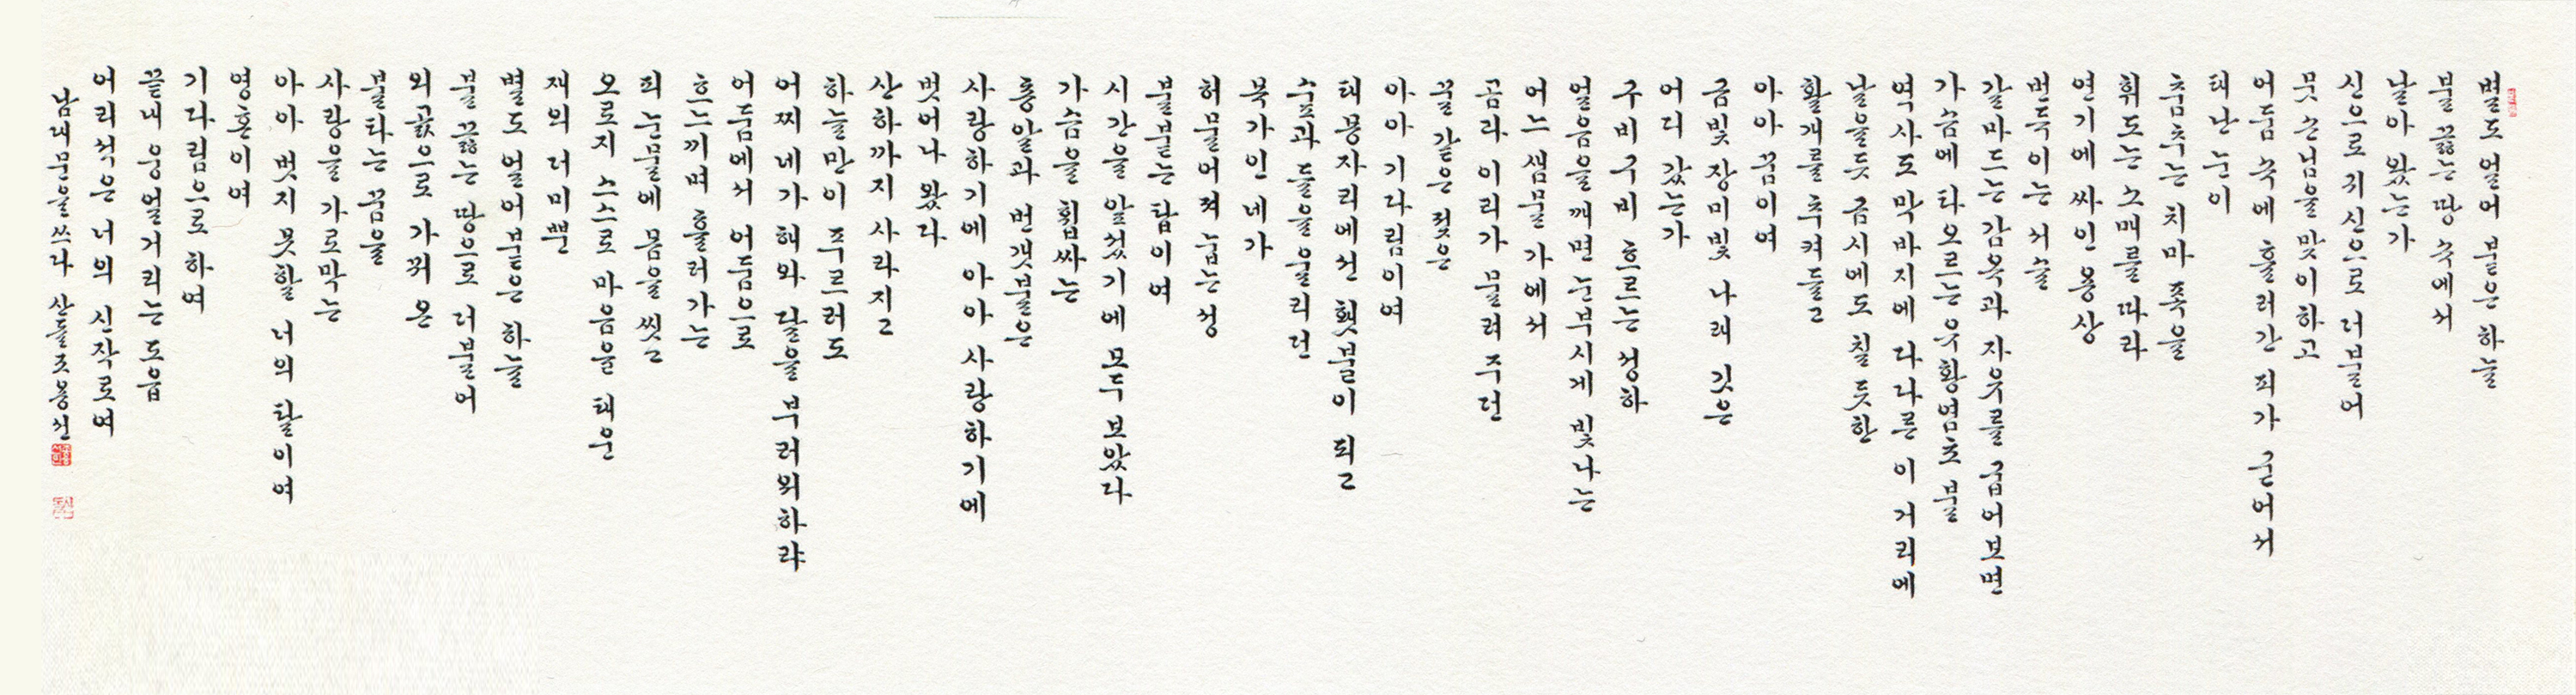 별도 얼어 붙은 하늘
불 끓는 땅 속에서
날아 왔는가
신으로 귀신으로 더불어
뭇 손님을 맞이하고
어둠 속에 흘러간 피가 굳어서
태난 눈이
춤추는 치마폭을
휘도는 소매를 따라
연기에 싸인 용상
번득이는 서슬
갈마드는 감옥과 자유를 굽어보면
가슴에 타오르는 유황염초 불
역사도 막바지에 다다른 이 거리에
날을듯 금시에도 칠 듯한
활개를 추켜들고
아아 꿈이여
금빛 장미빛 나래 깃은
어디 갔는가
구비 구비 흐르는 성하
얼음을 깨면 눈부시게 빛나는
어느 샘물 가에서
곰과 이리가 물려 주던
꿀 같은 젖은
아아 기다림이여
태몽자리에선 횃불이 되고
숲과 들을 울리던
북가인 네가
허물어져 눕는 성
불붙는 탑이여
시간을 앞섰기에 모두 보았다
가슴을 휩싸는
총알과 번갯불은
사랑하기에 아아 사랑하기에
벗어나 왔다
산하까지 사라지고
하늘만이 푸르러도
어찌 네가 해와 달을 부러워하랴
어둠에서 어둠으로
흐느끼며 흘러가는
피눈물에 몸을 씻고
오로지 스스로 마음을 태운
재의 더미뿐
별도 얼어붙은 하늘
불 끓는 땅으로 더불어
외곬으로 가꿔 온
불타는 꿈을
사랑을 가로막는
아아 벗지 못할 너의 탈이여
영혼이여
기다림으로 하여
끝내 웅얼거리는 도읍
어리석은 너의 신작로여
남대문을 쓰다 산돌 조용선